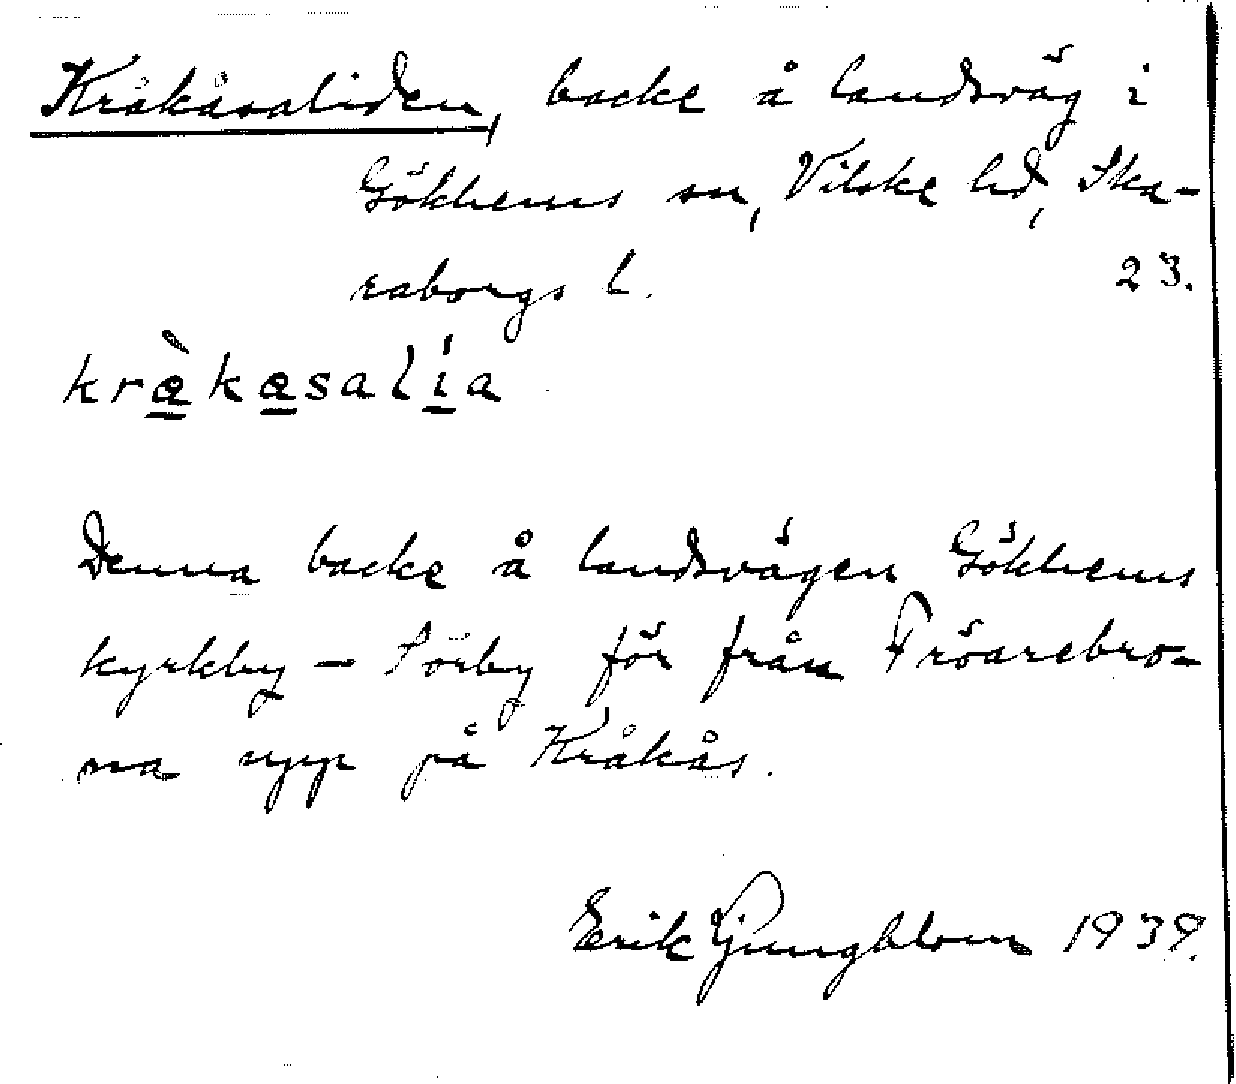 Kråkåsaliden, backe å landsväg i
Gökhems sn, Vilske hd, Ska-
raborgs l. 23.
kràkasalía
Denna backe å landsvägen Gökhems
kyrkby – Sörby för från Fröarebro-
na upp på Kråkås.
Erik Ljungblom 1939.